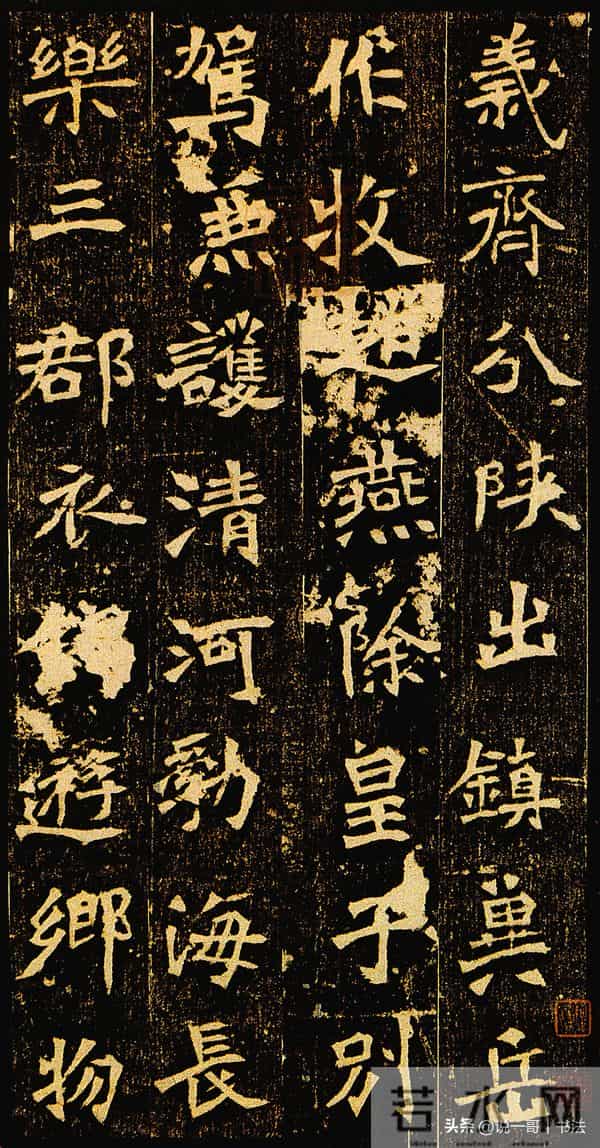 義齊分陝出鎮冀岳
作牧燕除皇子別
駕兼護清河勃海長
樂三郡衣遊鄉物
若水网
头条 @说一哥丨书法